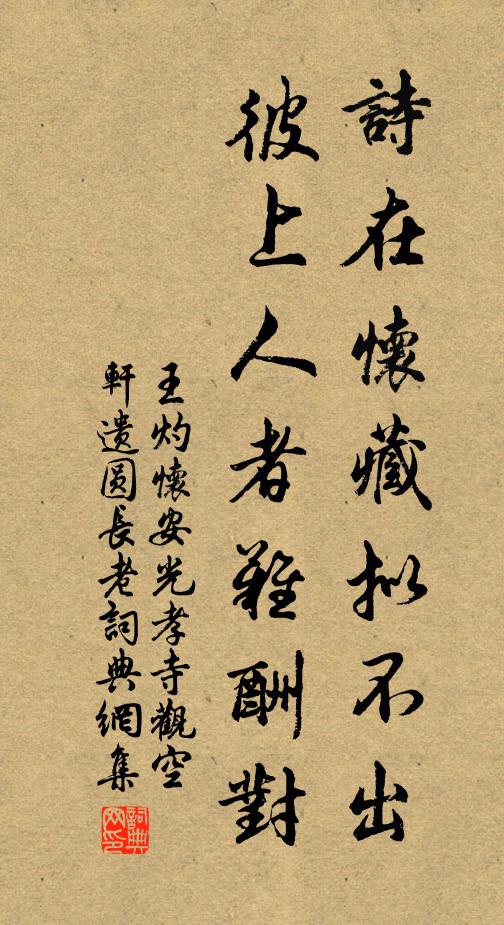 詩在懷藏拟不出
彼上人者難酬對
王灼懷安光孝寺觀空
軒遗圆長老詞典網集
詞典网印